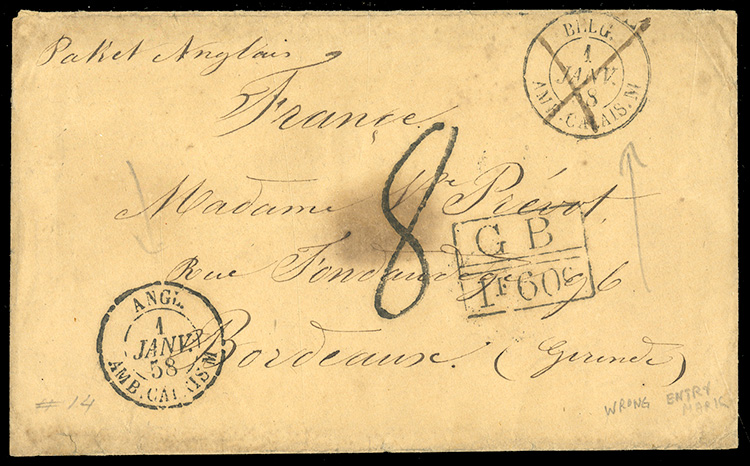 Paket Anglais
BELG.
1
JANV.
58
AMB. CALAIS. M
France
8
Madame Vve Prévot,
GB
1F60c
Rue Fondaudège 96
ANGL.
1
JANV.
58
AMB. CALAIS. M
Bordeaux. (Gironde)
# 14
WRONG ENTRY
MARK